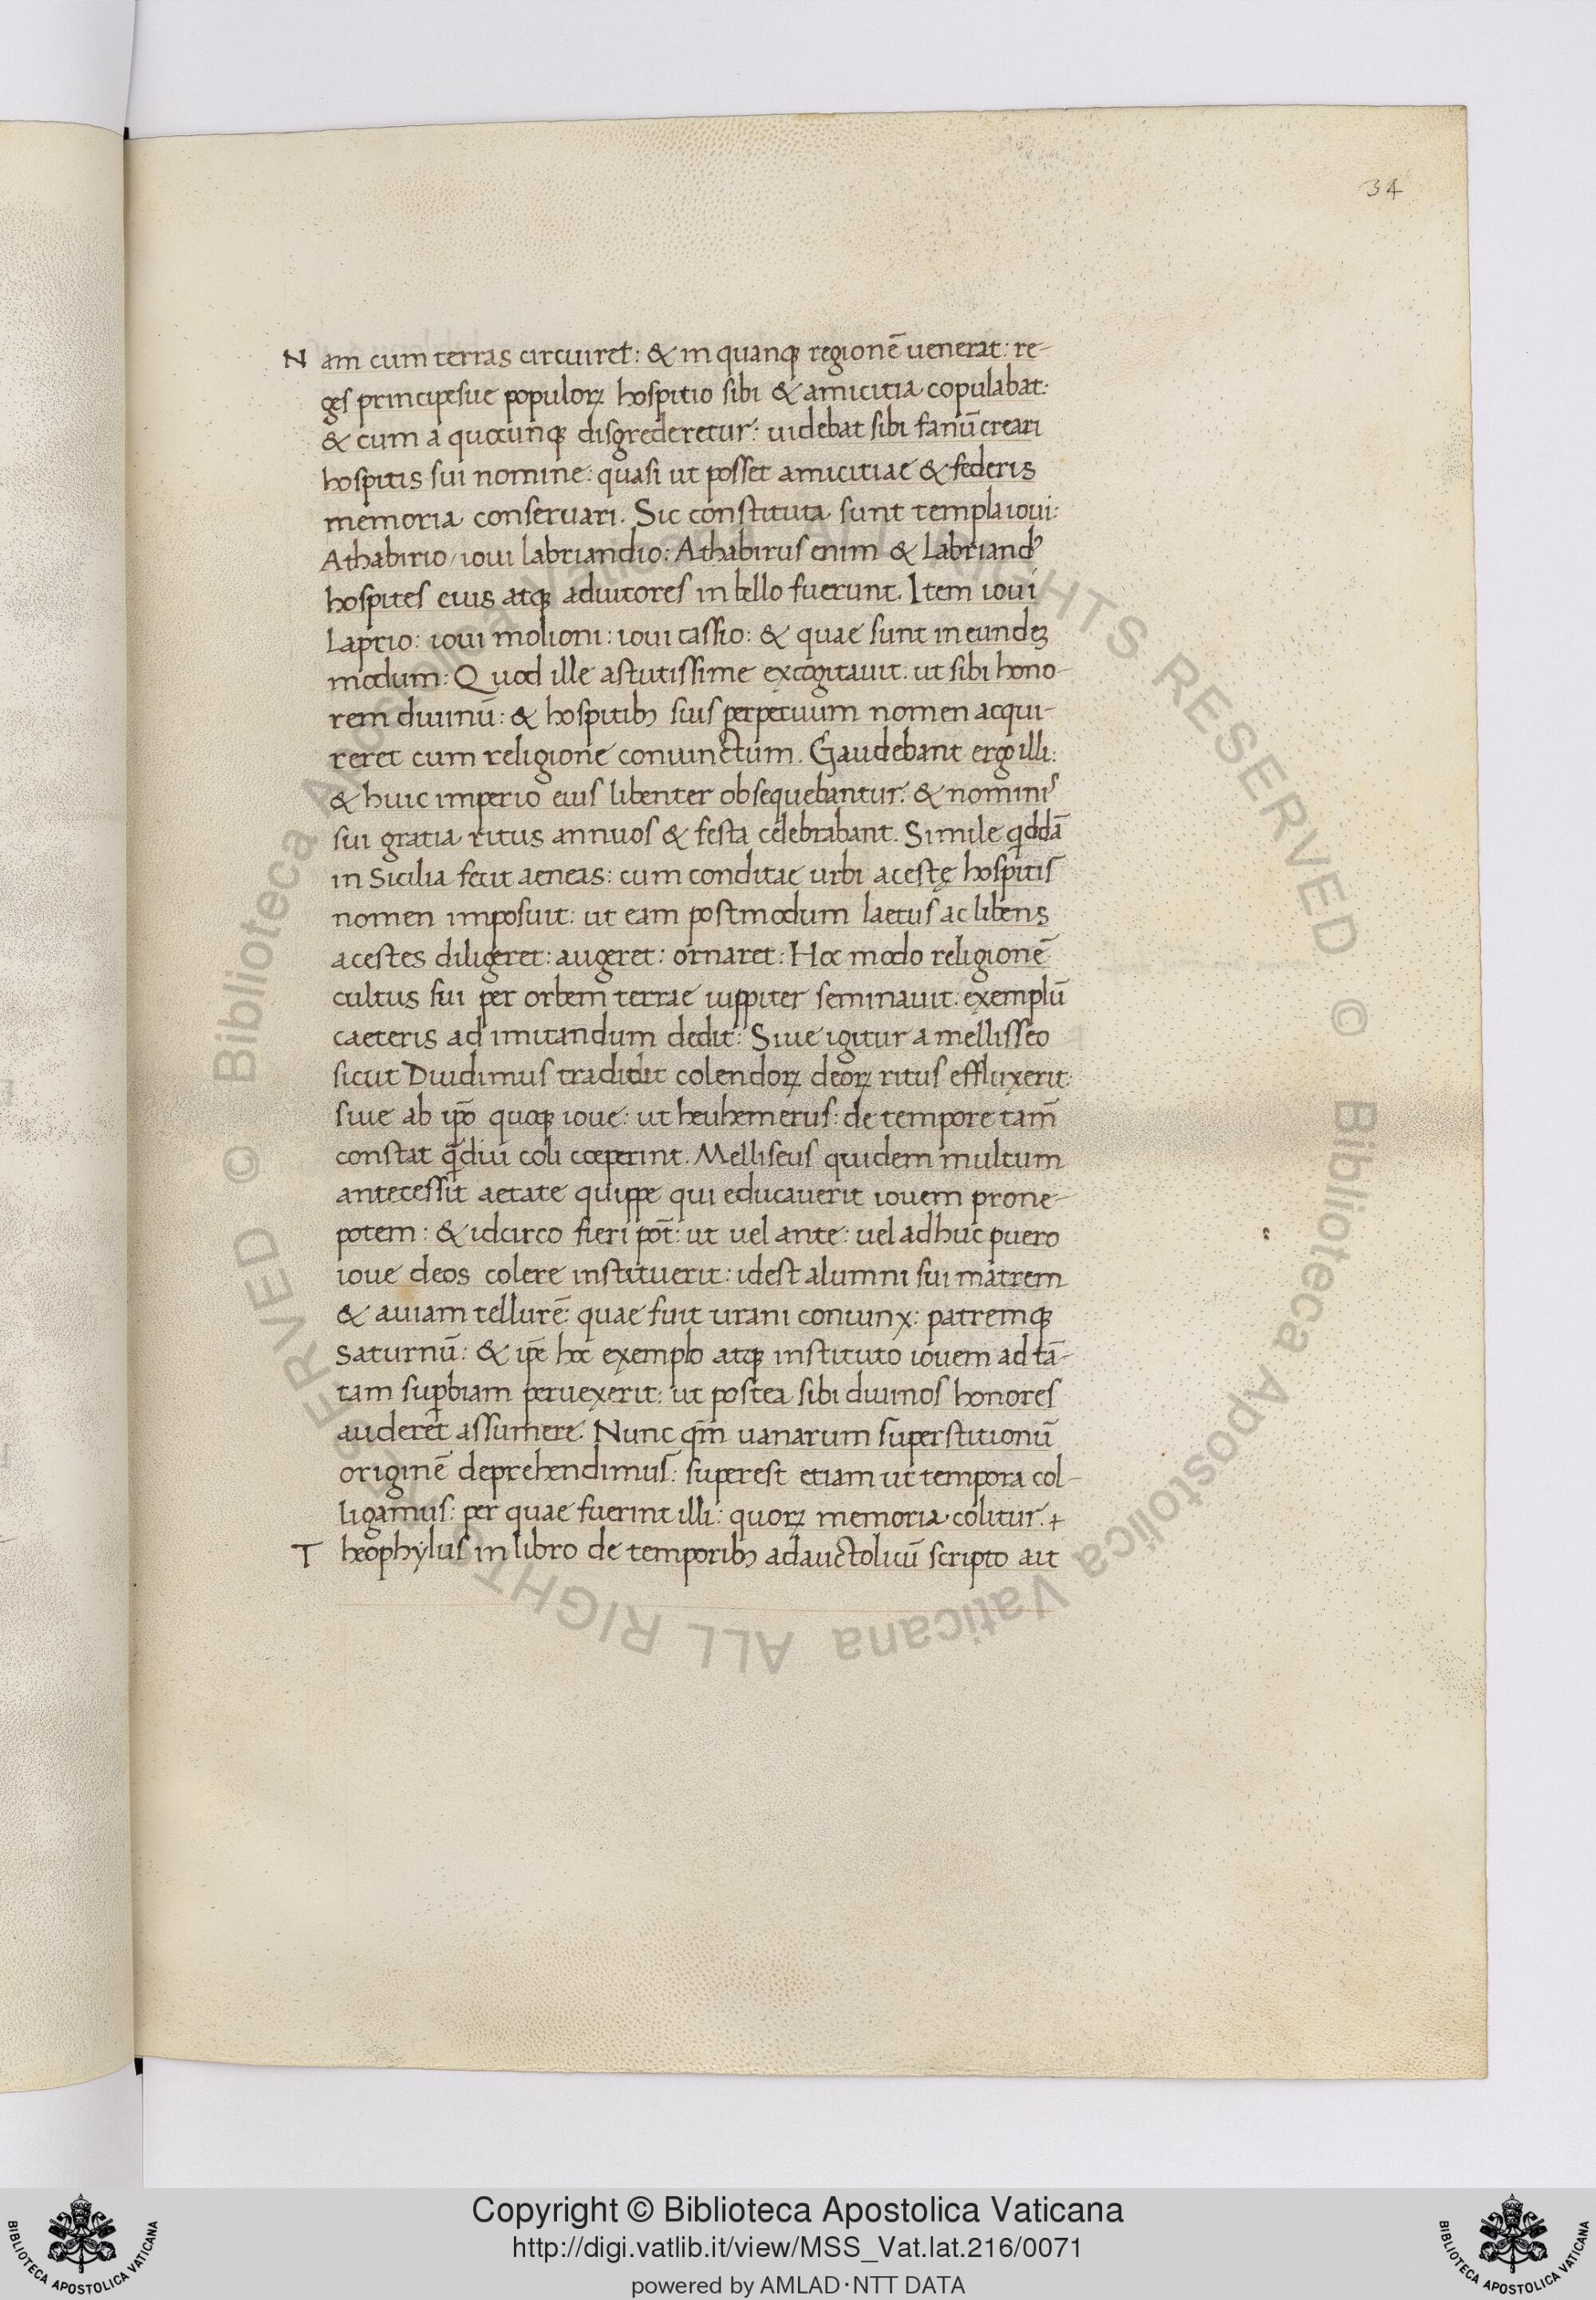 34
Nam cum terras circuiret: & in quanq; regionē uenerat: re-
ges principesue populoꝝ hospitio sibi & amicitia copulabat:
& cum a quocunq; disgrederetur: uidebat sibi fanū creari
hospitis sui nomine: quasi ut posset amicitiae & federis
memoria conseruari. Sic constituta sunt templa ioui:
Athabirio/ ioui labriandio: Athabirus enim & labriandꝰ
hospites eius atq; adiutores in bello fuerunt. Item ioui
Laprio: ioui molioni: ioui cassio: & quae sunt in eundeꝫ
modum: Quod ille astutissime excogitauit. ut sibi hono-
rem diuinū: & hospitibꝫ suis perpetuum nomen acqui-
reret cum religione coniunctum. Gaudebant ergo illi:
& huic imperio eius libenter obsequebantur: & nominis
sui gratia ritus annuos & festa celebrabant. Simile qddā
in Sicilia fecit aeneas: cum conditae urbi acestę hospitis
nomen imposuit: ut eam postmodum laetus ac libens
acestes diligeret: augeret: ornaret: Hoc modo religionē
cultus sui per orbem terrae iuppiter seminauit. exemplū
caeteris ad imitandum dedit: Siue igitur a mellisseo
sicut Diudimus tradidit colendoꝝ deoꝝ ritus effluxerit
siue ab ip̄o quoq; ioue: ut heuhemerus: de tempore tam̄
constat q̄ dii coli coeperint. Melliseus quidem multum
antecessit aetate quippe qui educauerit iouem prone-
potem: & idcirco fieri pōt: ut uel ante: uel adhuc puero
ioue deos colere instituerit: idest alumni sui matrem
& auiam tellurē: quae fuit urani coniunx: patremq;
Saturnū: & ip̄e hoc exemplo atq; instituto iouem ad tā-
tam suꝑbiam peruexerit: ut postea sibi diuinos honores
auderet assumere. Nunc qm̄ uanarum superstitionū
originē deprehendimus: superest etiam ut tempora col-
ligamus: per quae fuerint illi: quoꝝ memoria colitur.+
Theophylus in libro de temporibꝫ ad auctolicū scripto ait
© Biblioteca Apostolica Vaticana ALL RIGHTS RESERVED © Biblioteca Apostolica Vaticana ALL RIGHTS RESERVED
Copyright © Biblioteca Apostolica Vaticana
http://digi.vatlib.it/view/MSS_Vat.lat.216/0071
powered by AMLAD·NTT DATA
BIBLIOTECA APOSTOLICA VATICANA
BIBLIOTECA APOSTOLICA VATICANA